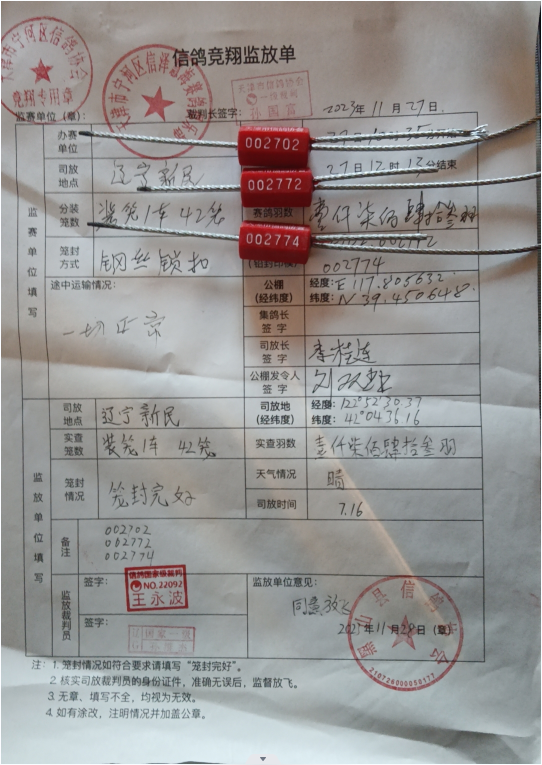 信鸽竞翔监放单
竞翔专用章
监赛单位（章）：
裁判长签字：
2023年11月27日
监赛单位填写
办赛单位
002702
司放地点
辽宁新民
27日12时13分结束
002772
分装笼数
装笼1车 42笼
赛鸽羽数
壹仟柒佰肆拾叁羽
002774
笼封方式
钢丝锁扣
002774
途中运输情况：
一切正常
公棚（经纬度）
经度：E 117.805632
纬度：N 39.450648
集鸽长签字
司放长签字
公棚发令人签字
监放单位填写
司放地点
辽宁新民
司放地（经纬度）
经度：122°52'30.37
纬度：42°04'36.16
实查笼数
装笼1车 42笼
实查羽数
壹仟柒佰肆拾叁羽
笼封情况
笼封完好
天气情况
晴
司放时间
7.16
备注
002702
002772
002774
监放裁判员
签字：
信鸽国家级裁判
NO.22092
王永波
签字：
监放单位意见：
同意放飞
2023年11月28日（章）
注：1. 笼封情况如符合要求请填写“笼封完好”。
2. 核实司放裁判员的身份证件，准确无误后，监督放飞。
3. 无章、填写不全，均视为无效。
4. 如有涂改，注明情况并加盖公章。